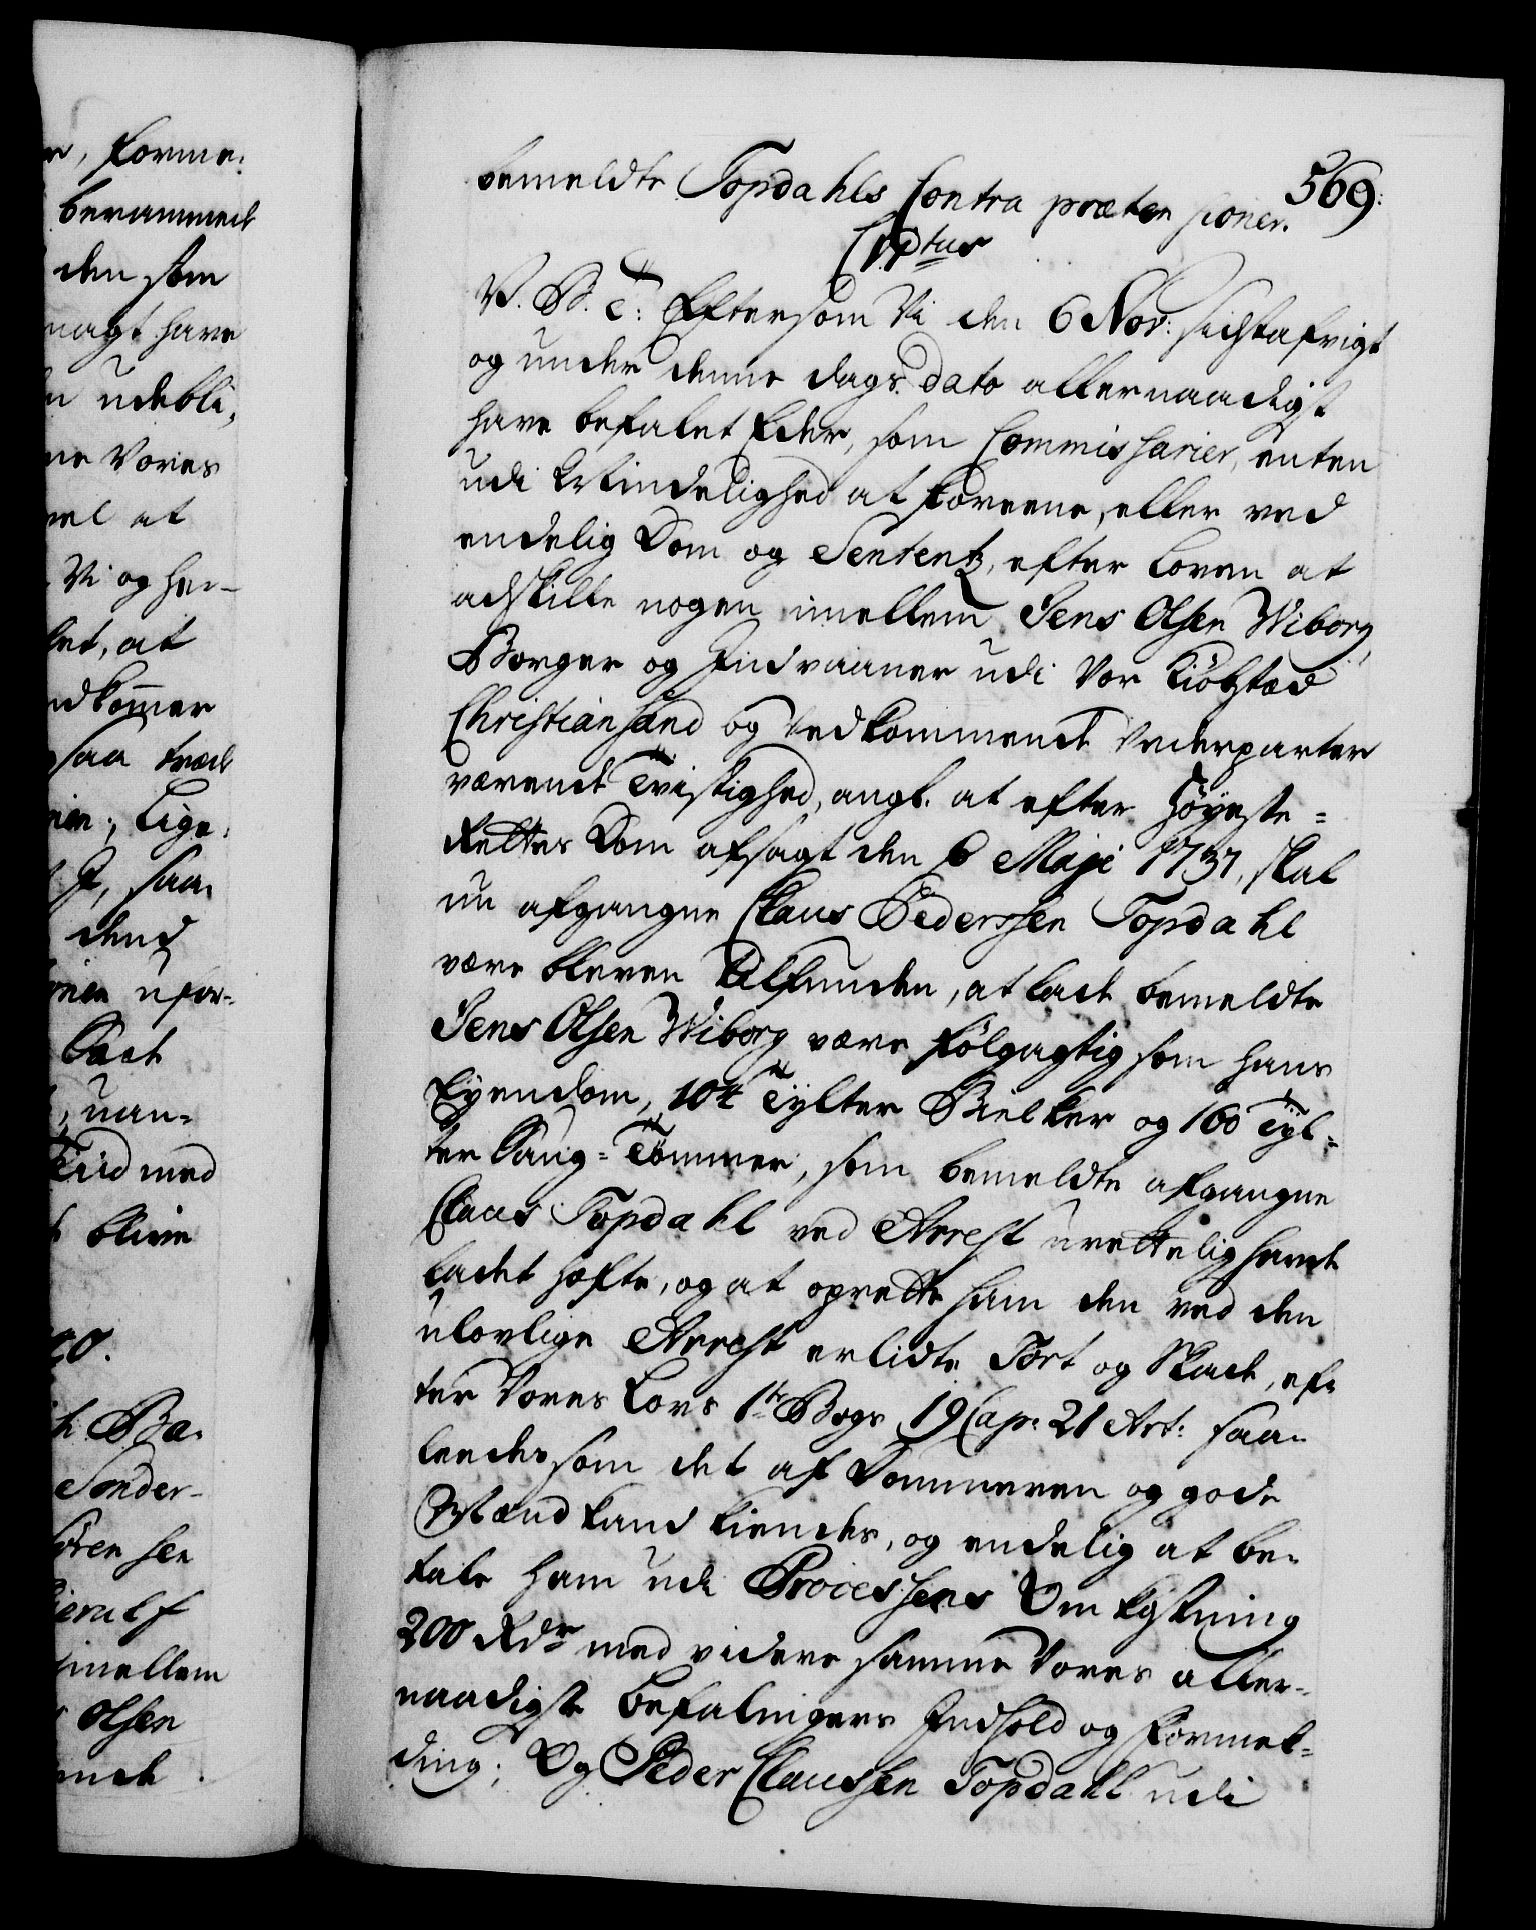 r, forme:
berammede
den som
magt have
n udebli,
ne Vores
vel at
Vi og her-
let, at
ndkom̄er
saa træde
nien; Lige:
J, saa,
dend
nien ufor-
Sact
, uan=
Tiid med
blive
h Ba.
Sønder-
ören sen
ierulf
imellem
Olsen
ende
569:
bemeldte Topdahls Contra prætensioner.
Cptus
V. B. T: Eftersom Vi den 6 Nov: sidstafvigt
og under denne dags dato allernaadigst
have befalet Eder, som Commissarier, enten
udi Mindelighed at foreene, eller ved
endelig Dom og Sententz, efter Loven at
adskille nogen imellem Jens Olsen Wiborg,
Borger og Indvaaner udi Vor Kiöbstad
Christiansand og vedkommende Vederparter
værende Tvistighed, angl. at efter Höyeste=
Rettes Dom afsagt den 6 Maji 1737, skal
nu afgangne Claus Pederssen Topdahl
være bleven tilfunden, at lade bemeldte
Jens Olsen Wiborg være fölgagtig som hans
Eyendom, 104 Tylter Bielker og 160 Tyl=
ter Saug=Tömmer, som bemeldte afgangne
Claus Topdahl ved Arrest urettelig havde
ladet hæfte, og at oprette ham den ved den
ulovlige Arrest erlidte Tort og Skade, ef=
ter Vores Lovs 1te Bogs 19 Cap: 21 Art: saa=
ledes som det af Dommeren og gode
Mænd kand kiendes, og endelig at be=
tale ham udi Processens Omkostning
200 Rdr med videre samme Vores aller=
naadigste befalingers Indhold og formel=
ding; Og Peder Claussen Topdahl udi